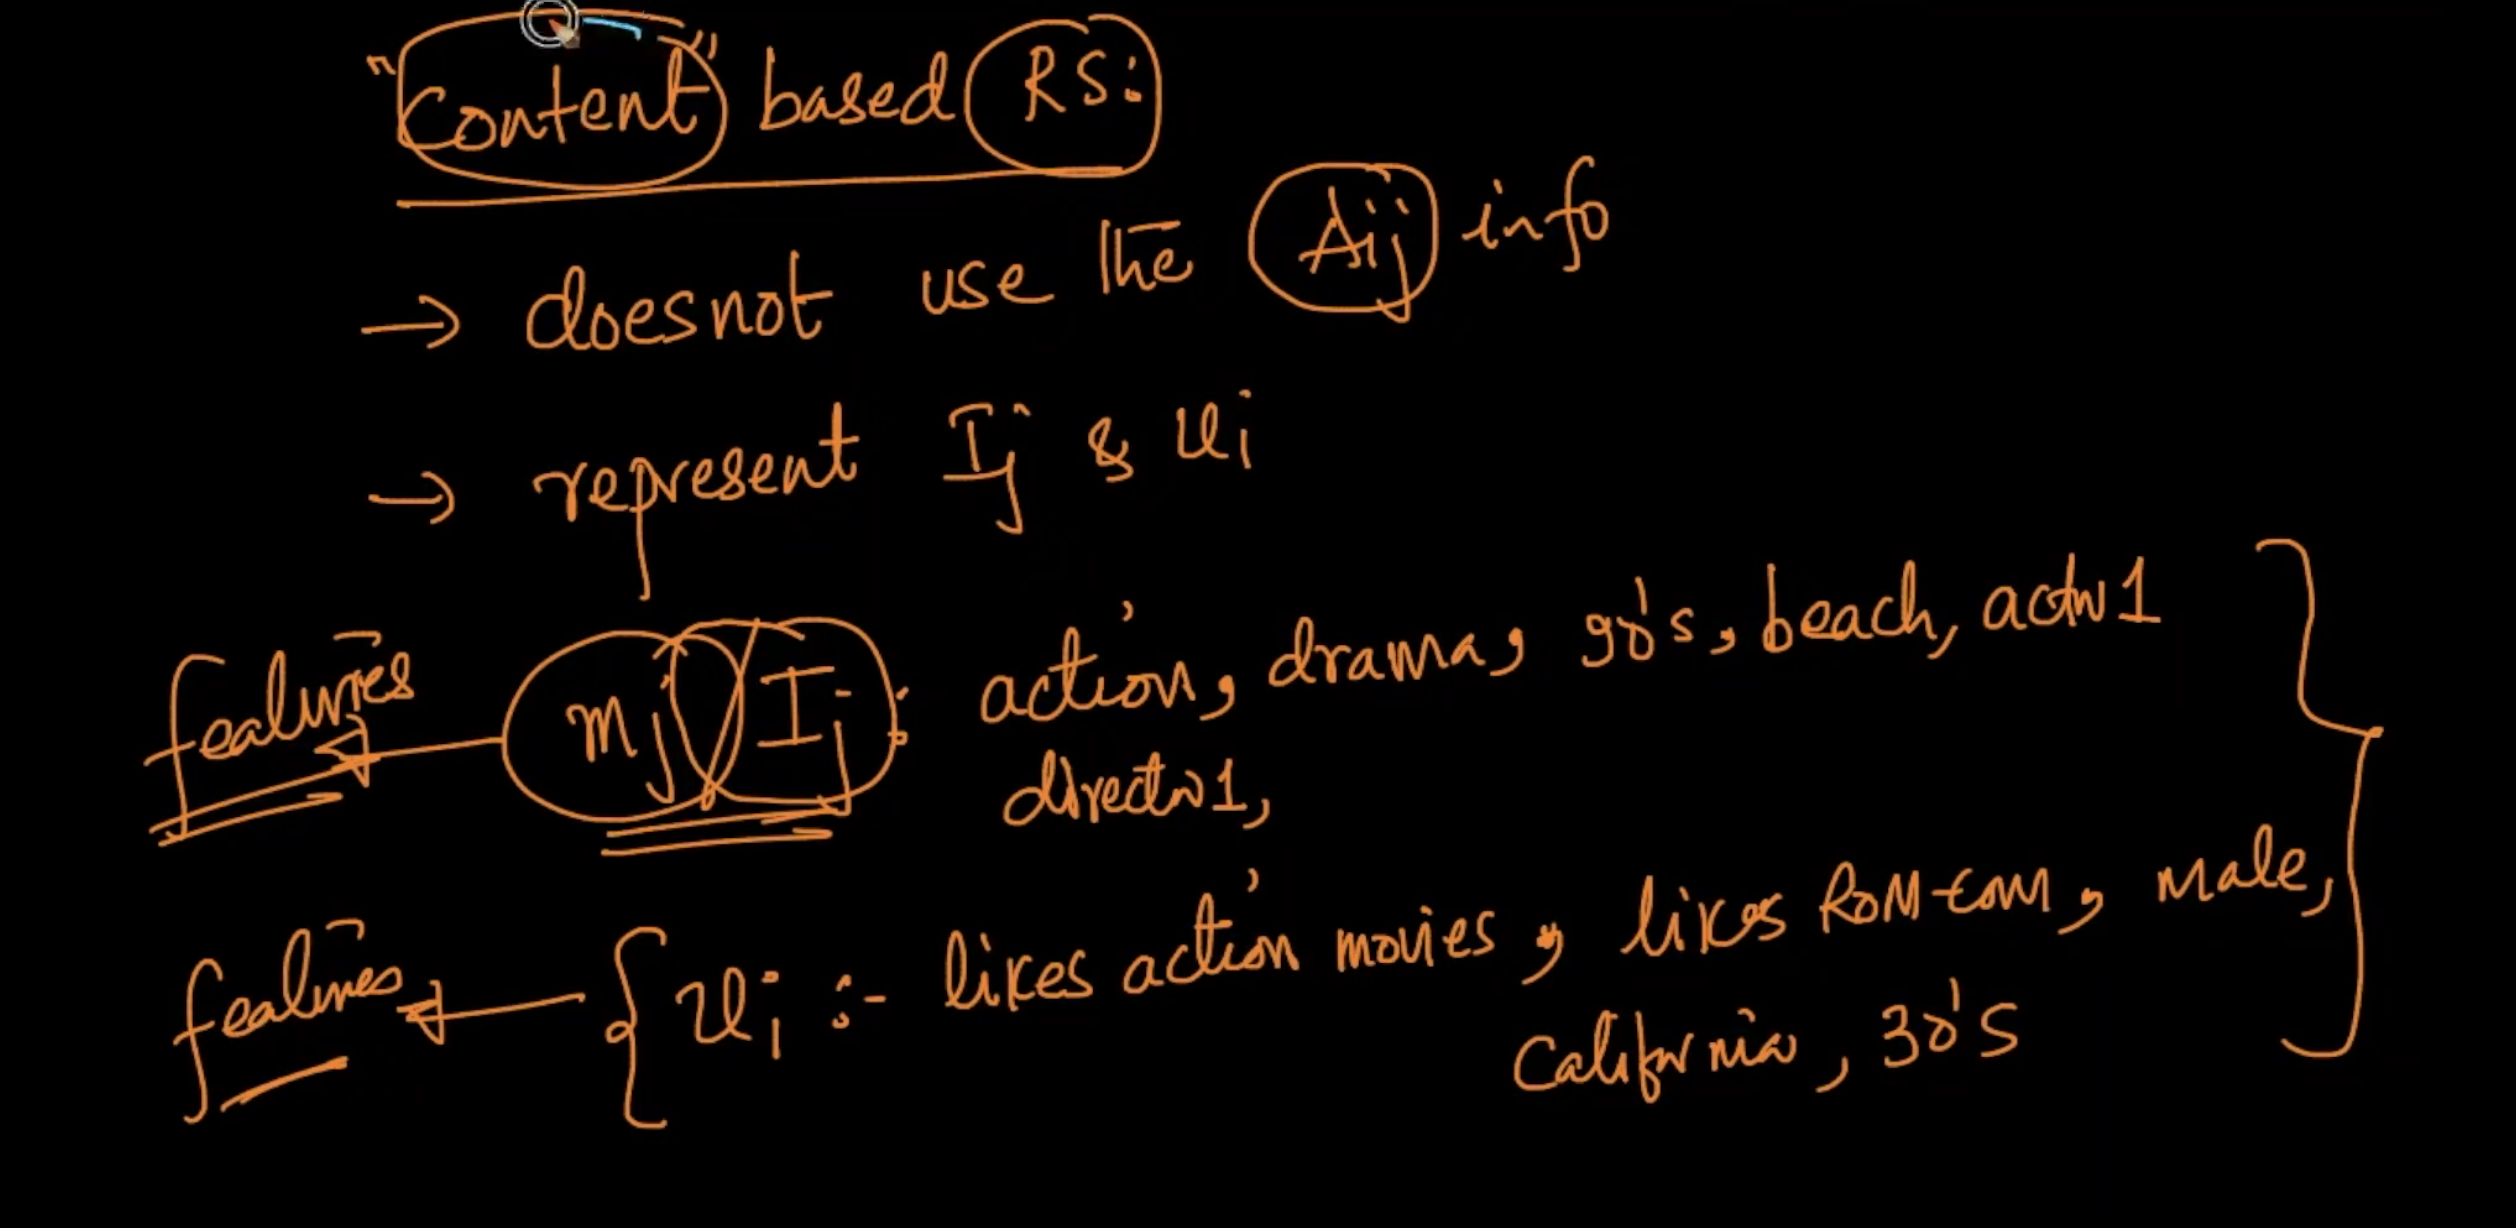 "Content" based RS:
→ doesnot use the Aij info
→ represent Ij & Ui
features ← Mj / Ij : action, drama, 90's, beach, actor1
director1,
features ← { Ui :- likes action movies, likes ROM-COM, Male,
California, 30's